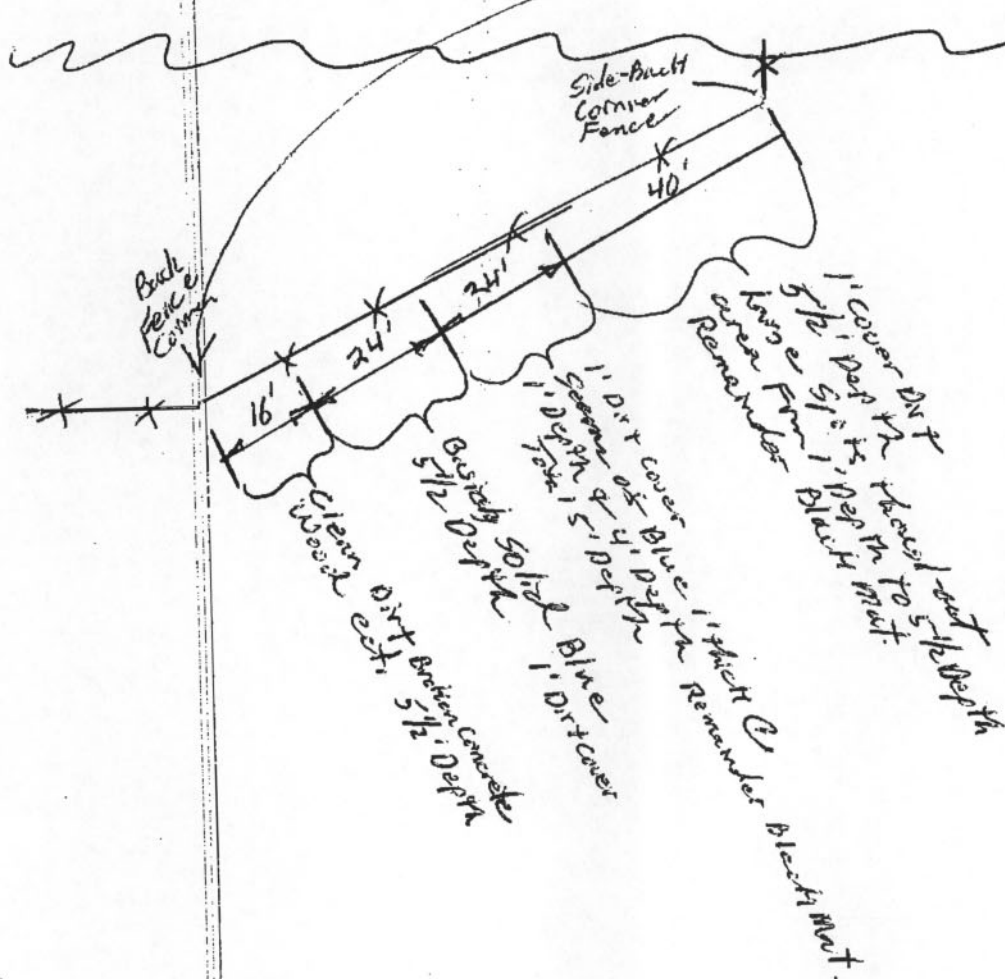 Side-Back
Corner
Fence
Back
Fence
Corner
16'
24'
24'
40'
Clean Dirt Broken concrete
Wood ect. 5 1/2' Depth
Basicly Solid Blue
5 1/2 Depth 1' Dirt cover
1' Dirt cover
Seam of Blue 1' thick @
1' Depth & 4' Depth Remainder Black Mat.
Total 5' Depth
1' Cover Dirt
5 1/2' Depth
Large Spots thoughout
area From 1' Depth to 5 1/2 Depth
Remainder Black Mat